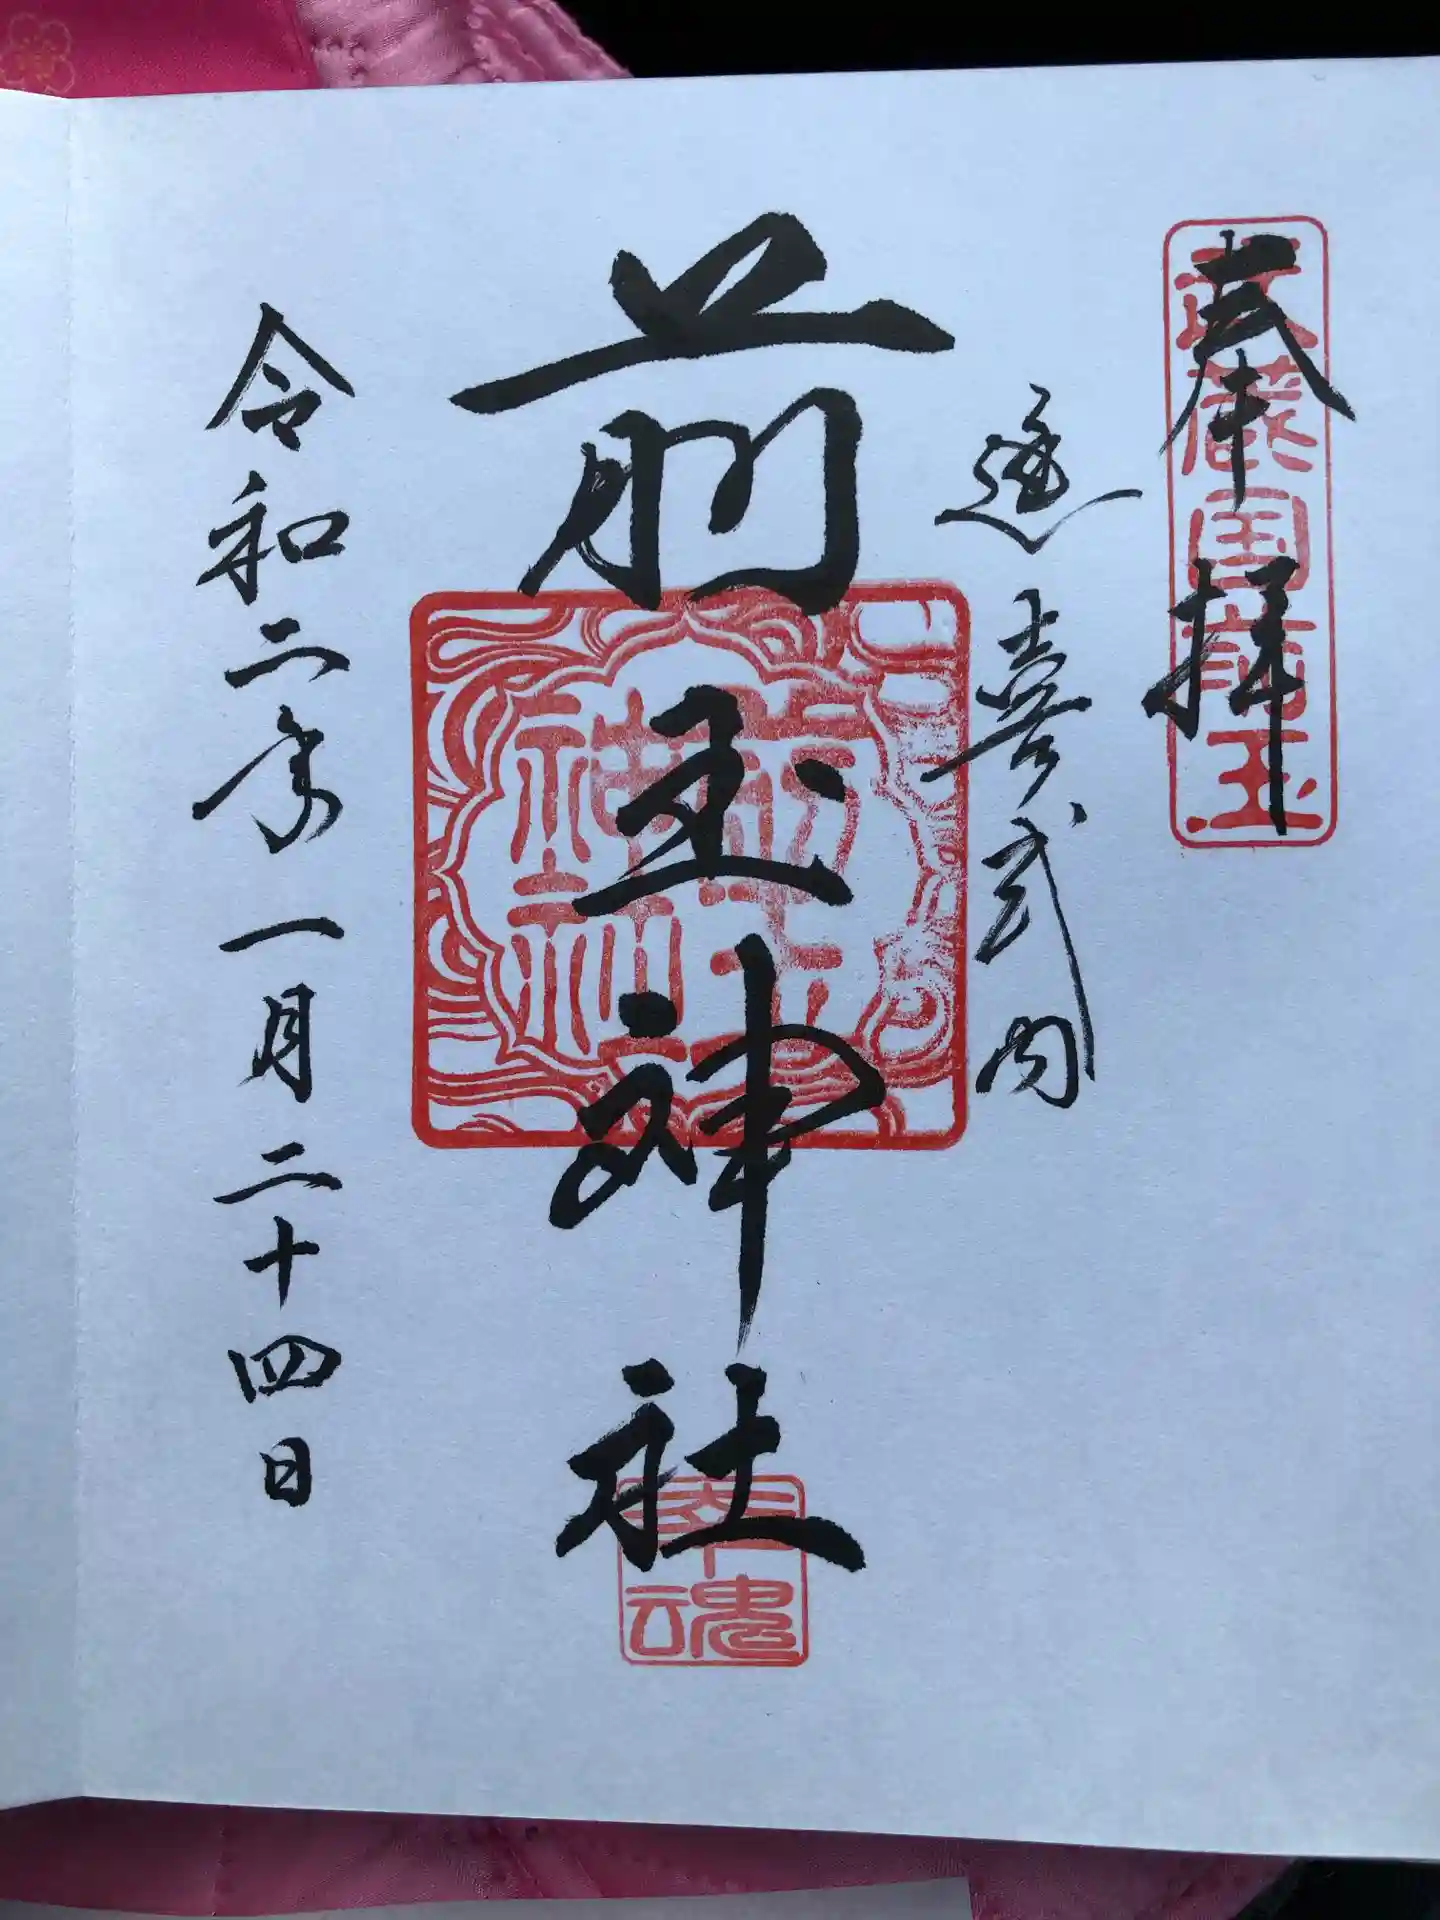 奉拝
武蔵国前玉
延喜式内
前玉神社
前玉神社
幸魂
令和二年一月二十四日